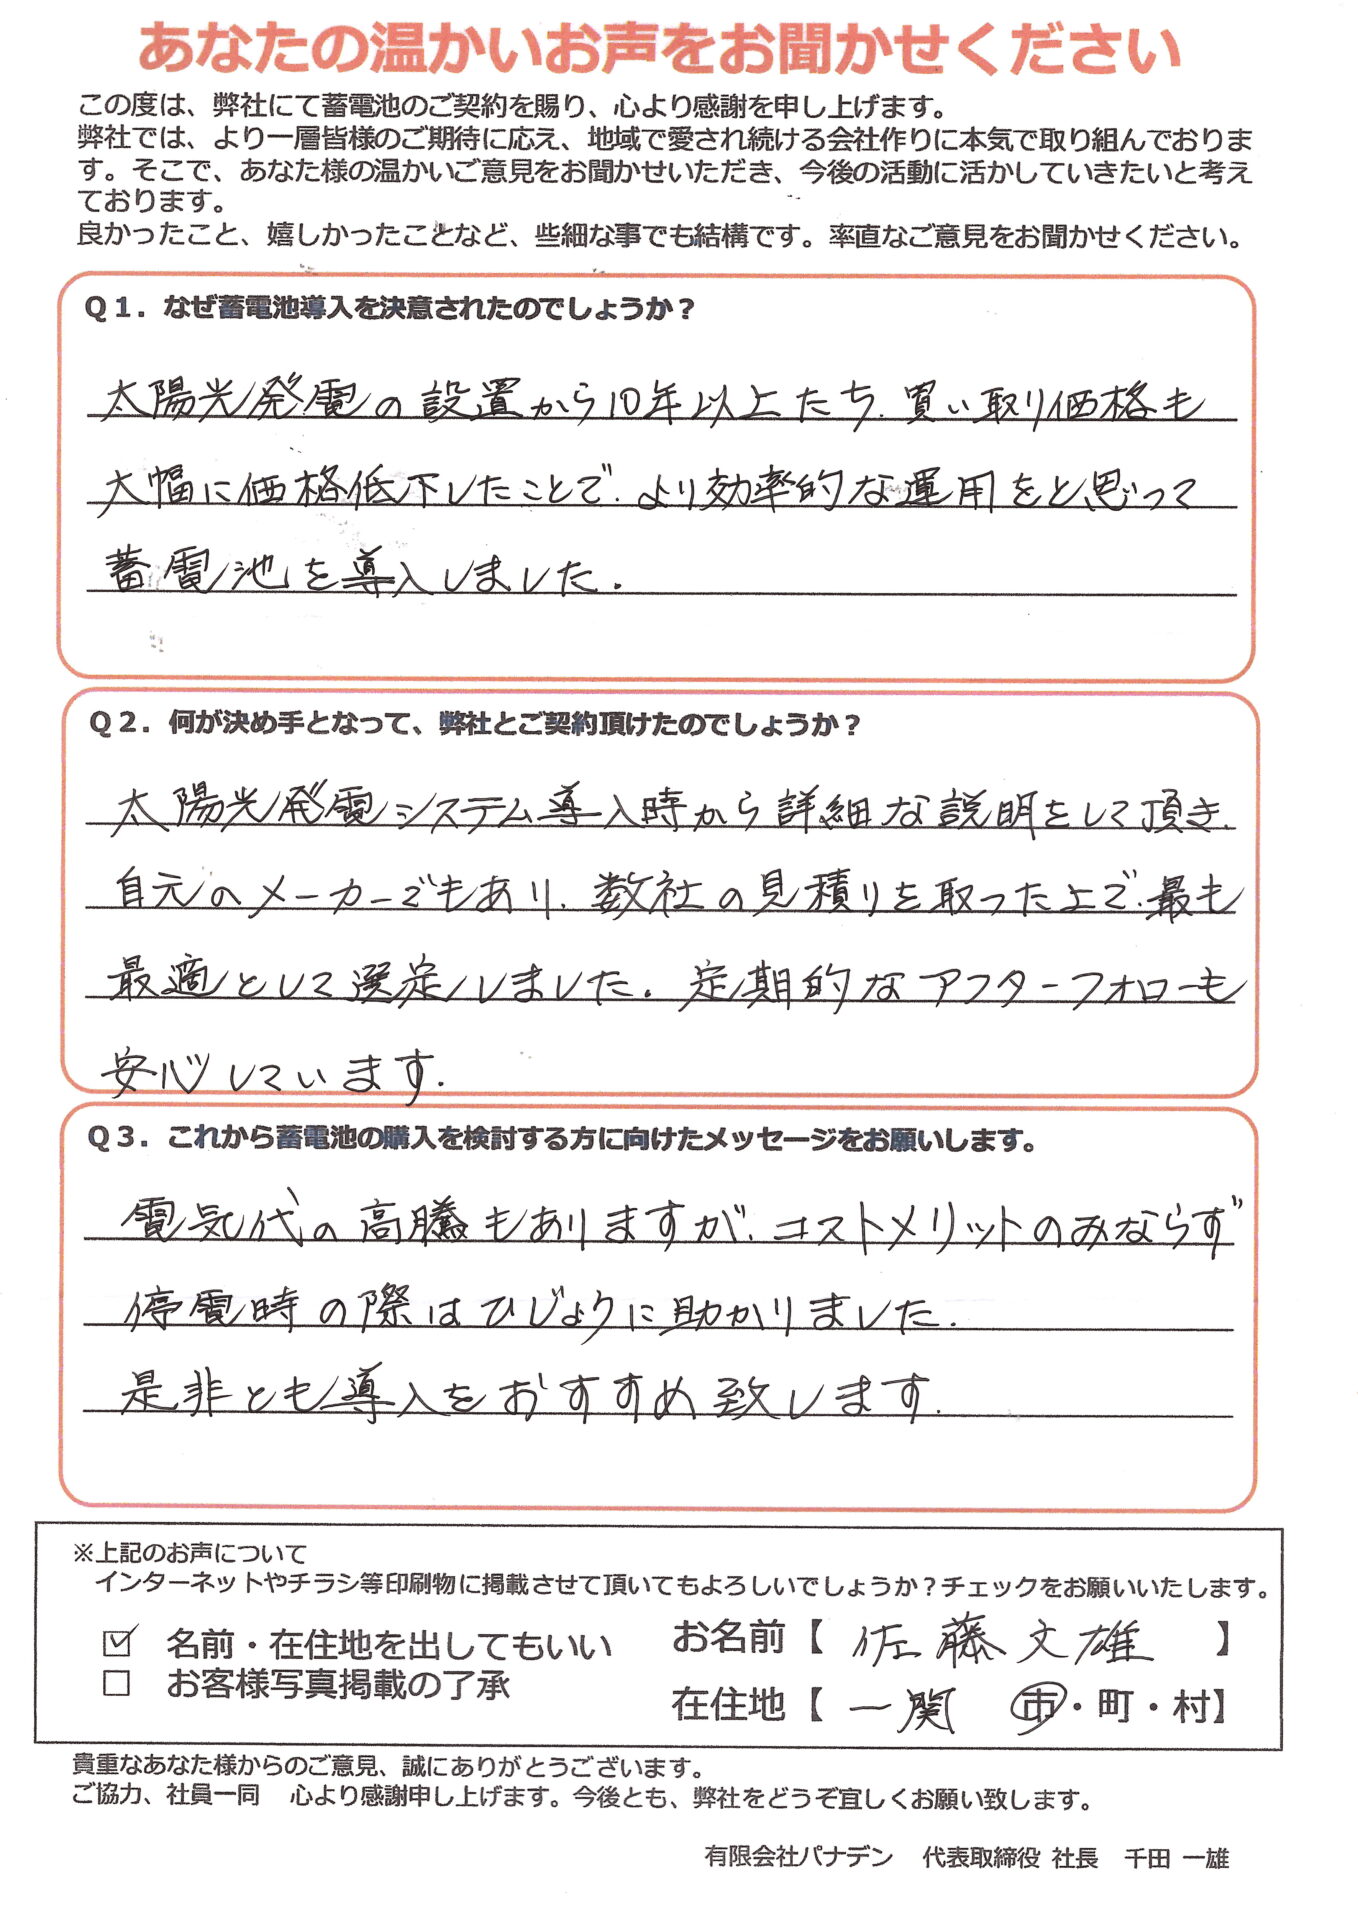 あなたの温かいお声をお聞かせください
この度は、弊社にて蓄電池のご契約を賜り、心より感謝を申し上げます。
弊社では、より一層皆様のご期待に応え、地域で愛され続ける会社作りに本気で取り組んでおりま
す。そこで、あなた様の温かいご意見をお聞かせいただき、今後の活動に活かしていきたいと考え
ております。
良かったこと、嬉しかったことなど、些細な事でも結構です。率直なご意見をお聞かせください。
Q1．なぜ蓄電池導入を決意されたのでしょうか？
太陽光発電の設置から10年以上たち、買い取り価格も
大幅に価格低下したことで、より効率的な運用をと思って
蓄電池を導入しました．
Q2．何が決め手となって、弊社とご契約頂けたのでしょうか？
太陽光発電システム導入時から詳細な説明をして頂き、
自元のメーカーでもあり、数社の見積りを取った上で、最も
最適として選定しました．定期的なアフターフォローも
安心しています．
Q3．これから蓄電池の購入を検討する方に向けたメッセージをお願いします。
電気代の高騰もありますが、コストメリットのみならず
停電時の際はひじょうに助かりました．
是非とも導入をおすすめ致します．
※上記のお声について
インターネットやチラシ等印刷物に掲載させて頂いてもよろしいでしょうか？チェックをお願いいたします。
☑ 名前・在住地を出してもいい お名前【 佐藤文雄 】
☐ お客様写真掲載の了承
在住地【 一関 市・町・村】
貴重なあなた様からのご意見、誠にありがとうございます。
ご協力、社員一同 心より感謝申し上げます。今後とも、弊社をどうぞ宜しくお願い致します。
有限会社パナデン 代表取締役 社長 千田 一雄